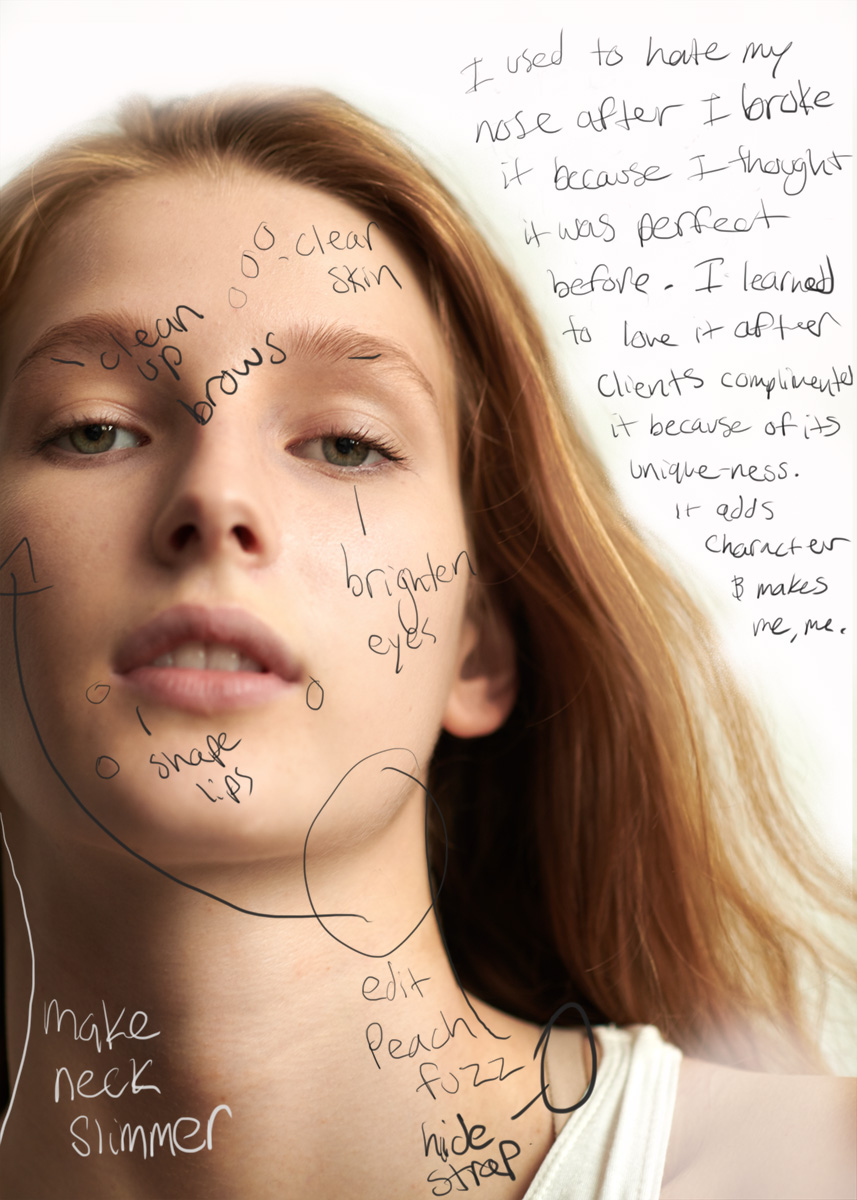 I used to hate my
nose after I broke
it because I thought
it was perfect
before. I learned
to love it after
clients complimented
it because of its
unique-ness.
it adds
character
& makes
me, me.
-clear
skin
clean
up
brows
brighten
eyes
shape
lips
edit
Peach
fuzz
hide
strap
make
neck
slimmer